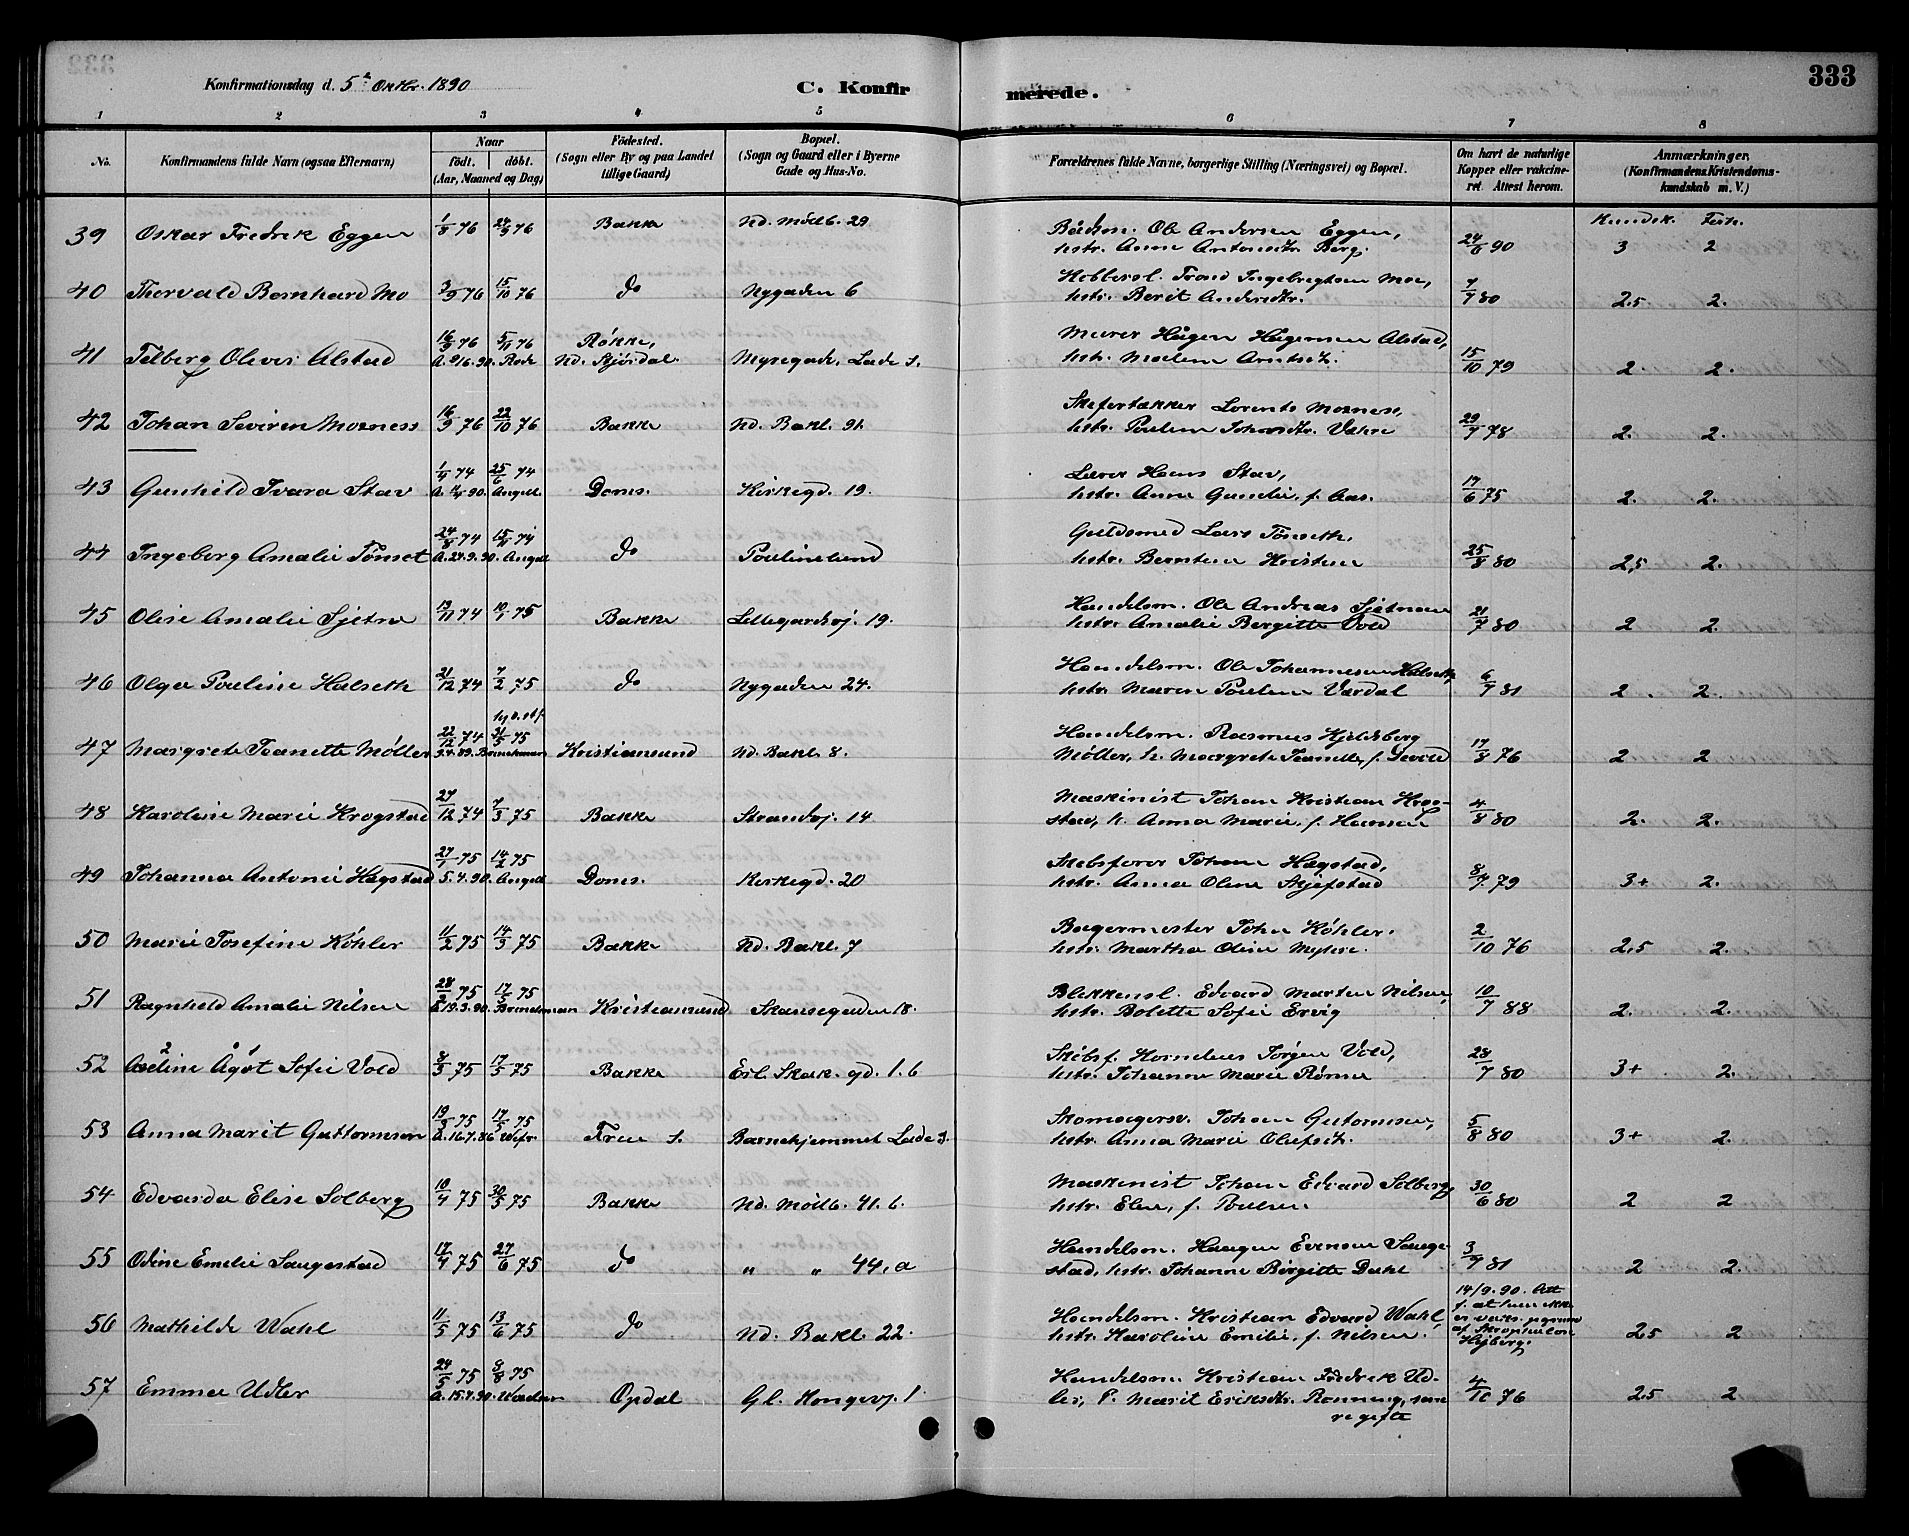 333
Konfirmationsdag d. 5te Oktbr. 1890
C. Konfirmerede.
1 2 3 4 5 6 7 8
No. Konfirmandens fulde Navn (ogsaa Efternavn) Naar födt. döbt. (Aar, Maaned og Dag) Födested. (Sogn eller By og paa Landet tillige Gaard) Bopæl. (Sogn og Gaard eller i Byerne Gade og Hus-No. Forældrenes fulde Navne, borgerlige Stilling (Næringsvei) og Bopæl. Om havt de naturlige Kopper eller vakcineret. Attest herom. Anmærkninger, (Konfirmandens Kristendomskundskab m. V.)
Kundsk. Flit.
39 Oskar Fredrik Eggen 1/8 76 24/9 76 Bakke Nd. Mølb. 29 Ole Andersen Eggen, hstr. Anne Antonsdtr. Berg. 24/6 90 3 2
40 Thorvald Bernhard Mo 3/9 76 15/10 76 do Nygaden 6 Trond Ingebrigtsen Moe, hstr. Berit Andersdtr. 7/7 80 2,5 2.
41 Olever Alstad 16/9 76 5/11 76 Røkke, Nd. Stjørdal. Myregade. Lade S. Murer Hågen Hågensen Alstad, hstr. Malene Arntsdt. 15/10 79 2. 2.
42 Johan Severin Mosness 16/9 76 22/10 76 Bakke Nd. Bakl. 91. Skifertækker Lorents Mosness, hstr. Pauline 29/7 78 2. 2.
43 Gunhild Tvara Stav 1/4 74 25/6 74 Angell. Doms. Kirkegd. 19. Lærer Hans Stav, hstr. Anna Gunelie, f. Aas. 17/6 75 2. 2.
44 Ingeborg Amalie Tønset 24/8 74 15/11 74 A. 24.9.90. Angell do Paulinelund Guldsmed Lars Tønseth, hstr. Berntine Kristine 25/8 80 2,5 2.
45 Olise Amalie Sjetne 13/11 74 10/1 75 Bakke Lillegårdsbj. 19. Handelsm. Ole Andreas Sjetnan hstr. Amalie Bergitte Vold 21/7 80 2 2.
46 Olga Pauline Halseth 21/12 74 7/2 75 do Nygaden 24. Handelsm. Ole Johannesen Halseth, hstr. Maren Pauline Værdal 6/7 81 2. 2.
47 Margrete Jeanette Møller 22/12 74 21/5 75 Kristiansund Nd. Bakl. 8. Handelsm. Rasmus Hjeldsberg Møller, h. Margrete Jeanette, f. 17/8 76 2 2
48 Karoline Marie Krogstad 27/12 74 7/3 75 Bakke Strandvj. 14 Maskinist Johan Kristian Krogstad, h. Anna Marie, f. Hansen 4/8 80 2. 2.
49 Johanna Antonie Hagstad 27/1 75 14/2 75 5.4.90. Angell Doms. Kirkegd. 20 Skibsfører Johan Hagstad, hstr. Anna Oline Skjefstad 8/7 79 3+ 2.
50 Marie Josefine Köhler 11/2 75 14/3 75 Bakke Nd. Bakl. 7 Bagermester John Köhler. hstr. Martha Oline Myhre. 2/10 76 2,5 2.
51 Ragnhild Amalie Nilsen 28/2 75 17/5 75 Kristiansund Skansegaden 18. Blikkensl. Edvard Martin Nilsen, hstr. Bolette Sofie Ervig 10/7 88 2. 2.
52 Adeline Ågot Sofie Vold 8/3 75 17/5 75 Bakke Erl. Skak. gd. 1. b Skibsf. Kornelius Jørgen Vold, hstr. Johanne Marie Rømer 28/7 80 3+ 2.
53 Anna Marit Guttormsen 19/3 75 17/5 75 Frue S. Barnehjemmet Lade S. Skomagersv. Johan Gutormsen, hstr. Anna Marie Olufsdt. 5/8 80 3+ 2.
54 Edvarda Elise Solberg 10/4 75 30/5 75 Bakke Nd. Mølb. 41. b. Maskinist Johan Edvard Solberg, hstr. Elen, f. Poulsen. 30/6 80 2 2
55 Odine Emelie Saugestad 17/4 75 27/6 75 do " " 44, a Handelsm. Haagen Evensen Saugestad, hstr. Johanne Birgitte Dahl 3/7 81 2 2.
56 Mathilde Wahl 11/5 75 13/6 75 do Nd. Bakl. 22. Handelsm. Kristian Edvard Wahl, hstr. Karoline Emilie, f. Nilsen. 14/9. 90. Att f. at hun ikke er Højberg. 2,5 2
57 Emma Udler 24/5 75 8/8 75 Opdal Gl. Kongevj. 1 Handelsm. Kristian Fredrik Udler, P. Marit Eriksdtr. Rønning, 4/10 76 2,5 2